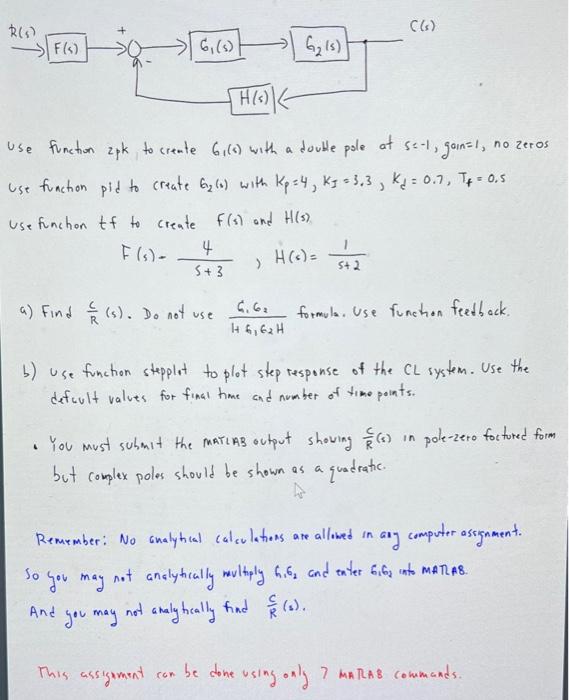 R(s) C(s)
F(s) + - G₁(s) G₂(s)
H(s)
Use function zpk, to create G₁(s) with a double pole at s=-1, gain=1, no zeros
Use function pid to create G₂(s) with Kp=4, KI=3.3, Kd=0.7, Tf=0.5
Use function tf to create F(s) and H(s)
F(s)= 4/(s+3) , H(s)= 1/(s+2)
a) Find C/R (s). Do not use G₁G₂/(1+G₁G₂H) formula. Use function feedback.
b) Use function stepplot to plot step response of the CL system. Use the
default values for final time and number of time points.
• You must submit the MATLAB output showing C/R(s) in pole-zero factored form
but complex poles should be shown as a quadratic.
Remember: No analytical calculations are allowed in any computer assignment.
So you may not analytically multiply G₁G₂ and enter G₁G₂ into MATLAB.
And you may not analytically find C/R (s).
This assignment can be done using only 7 MATLAB commands.